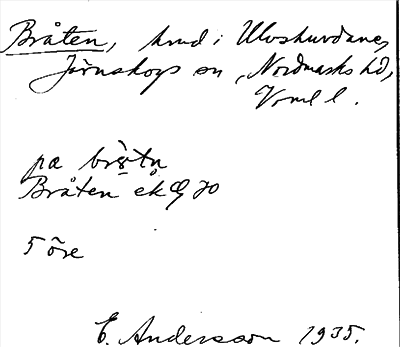 Bråten, hmd i Ulvshuvdane,
Järnskogs sn, Nordmarks hd,
Vrml l.
pa bråtn
Bråten ek 70
5 öre
E. Andersson 1935.